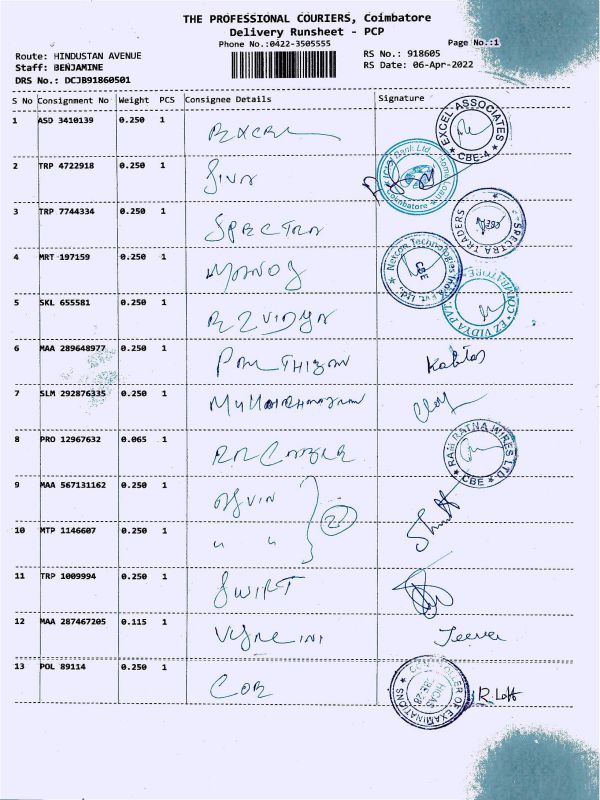 THE PROFESSIONAL COURIERS, Coimbatore
Delivery Runsheet - PCP
Phone No.:0422-3505555
Page No.:1
Route: HINDUSTAN AVENUE
Staff: BENJAMINE
DRS No.: DCJB91860501
RS No.: 918605
RS Date: 06-Apr-2022
S No Consignment No Weight PCS Consignee Details Signature
1 ASD 3410139 0.250 1 EXCEL EXCEL ASSOCIATES CBE-4
2 TRP 4722918 0.250 1 ICICI Bank Ltd. Coimbatore
3 TRP 7744334 0.250 1 SPECTRA SPECTRA TRADERS
4 MRT 197159 0.250 1 MANOJ Netcon Technologies India Pvt. Ltd. CBE
5 SKL 655581 0.250 1 EZ VIDYA EZ VIDYA PVT. COIMBATORE
6 MAA 289648977 0.250 1
7 SLM 292876335 0.250 1
8 PRO 12967632 0.065 1 RAM RATNA WIRES LTD CBE
9 MAA 567131162 0.250 1
10 MTP 1146607 0.250 1 " "
2
11 TRP 1009994 0.250 1 SWIFT
12 MAA 287467205 0.115 1 Jeeva
13 POL 89114 0.250 1 COE CONTROLLER OF EXAMINATIONS HICAS CBE-28